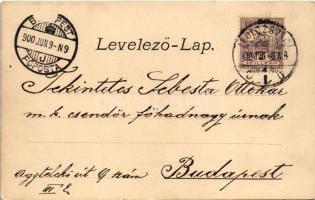 BUDAPEST
900 JUN 9 - N9
FŐPOSTA
Levelező-Lap.
Tekintetes Sebesta Ottokár
m. k. csendőr főhadnagy úrnak
Aggteleki út 9 szám
III. e.
Budapest